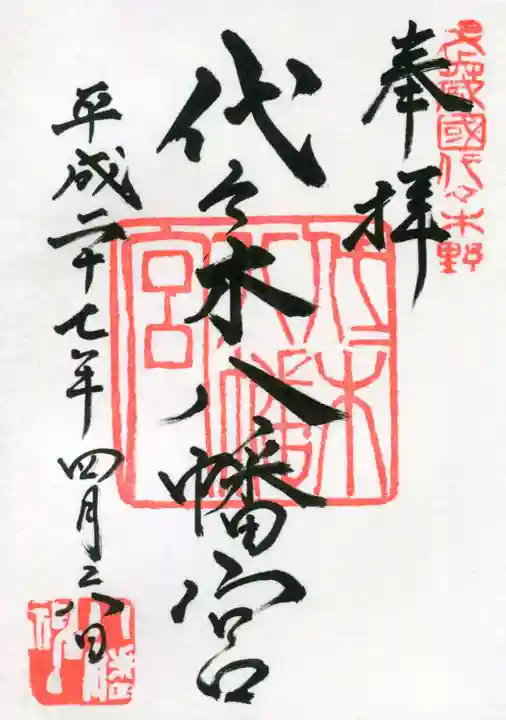 武蔵國代々木野
奉拝
代々木八幡宮
代々木八幡宮
平成二十七年四月二八日